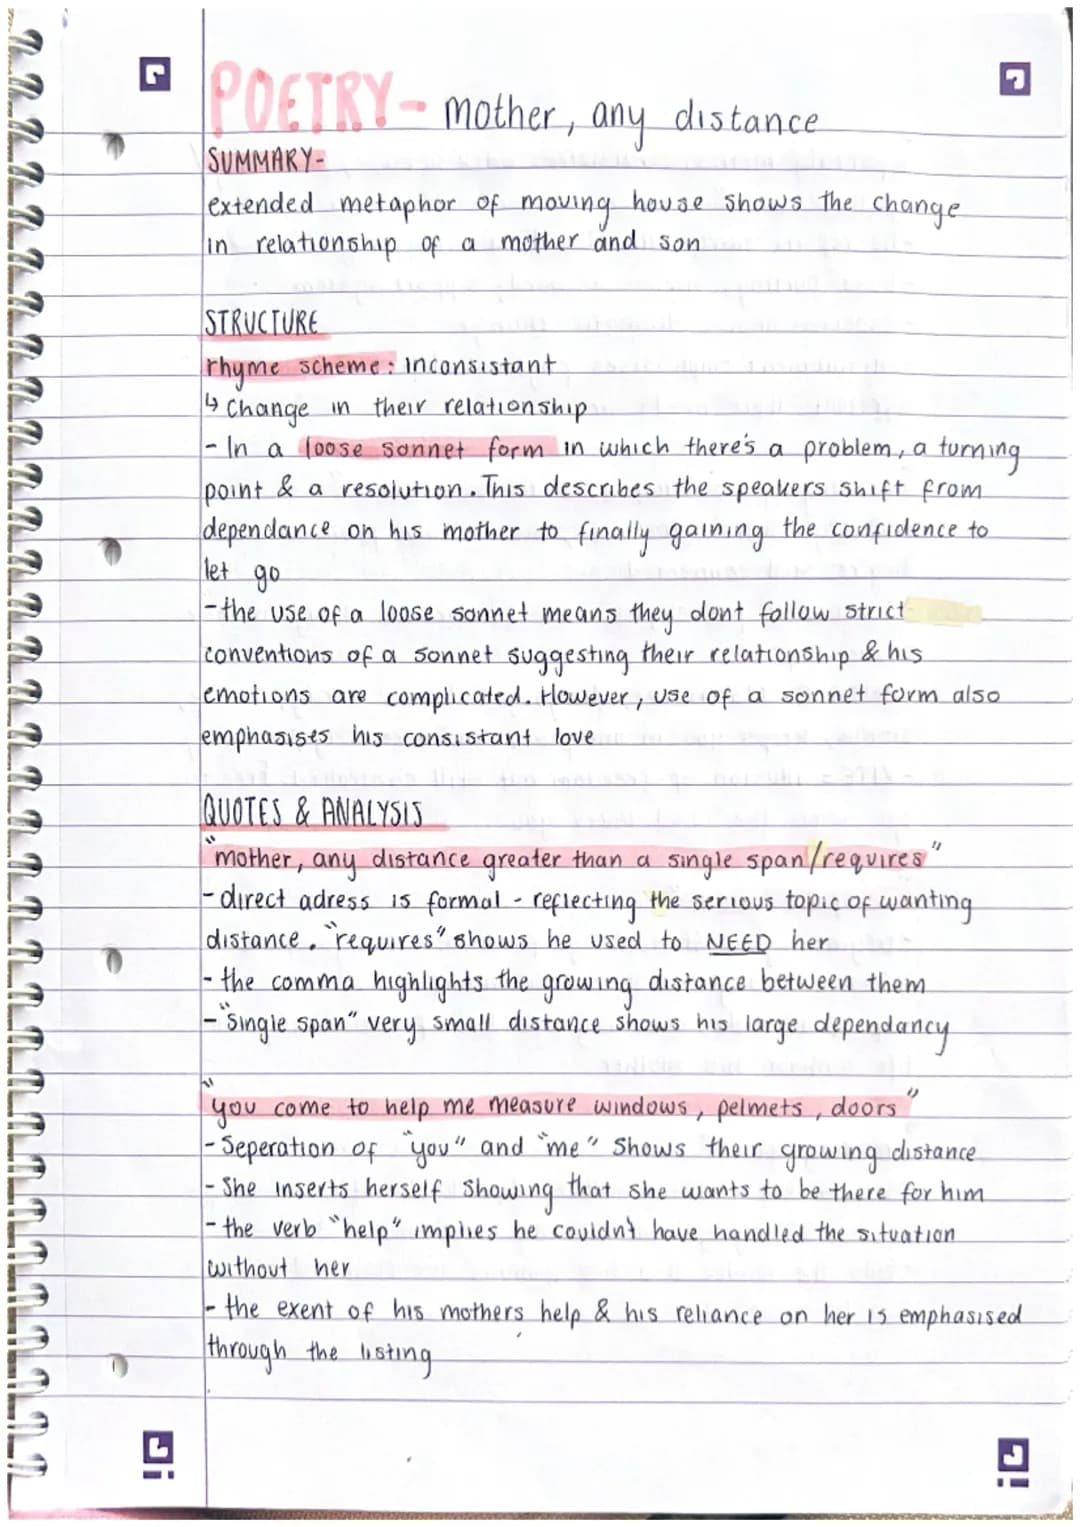 POETRY- mother, any distance
SUMMARY-
extended metaphor of moving house shows the change
in relationship of a mother and son
STRUCTURE
rhyme scheme: inconsistant
↳ Change in their relationship
- In a loose sonnet form in which there's a problem, a turning
point & a resolution. This describes the speakers shift from
dependance on his mother to finally gaining the confidence to
let go
- the use of a loose sonnet means they dont follow strict
conventions of a sonnet suggesting their relationship & his
emotions are complicated. However, use of a sonnet form also
emphasises his consistant love
QUOTES & ANALYSIS
"mother, any distance greater than a single span/requires"
- direct adress is formal - reflecting the serious topic of wanting
distance. "requires" shows he used to NEED her
- the comma highlights the growing distance between them
- "Single span" very small distance shows his large dependancy
"you come to help me measure windows, pelmets, doors"
- Seperation of "you" and "me" Shows their growing distance
- She inserts herself showing that she wants to be there for him
- the verb "help" implies he couldn't have handled the situation
without her
- the exent of his mothers help & his reliance on her is emphasised
through the listing